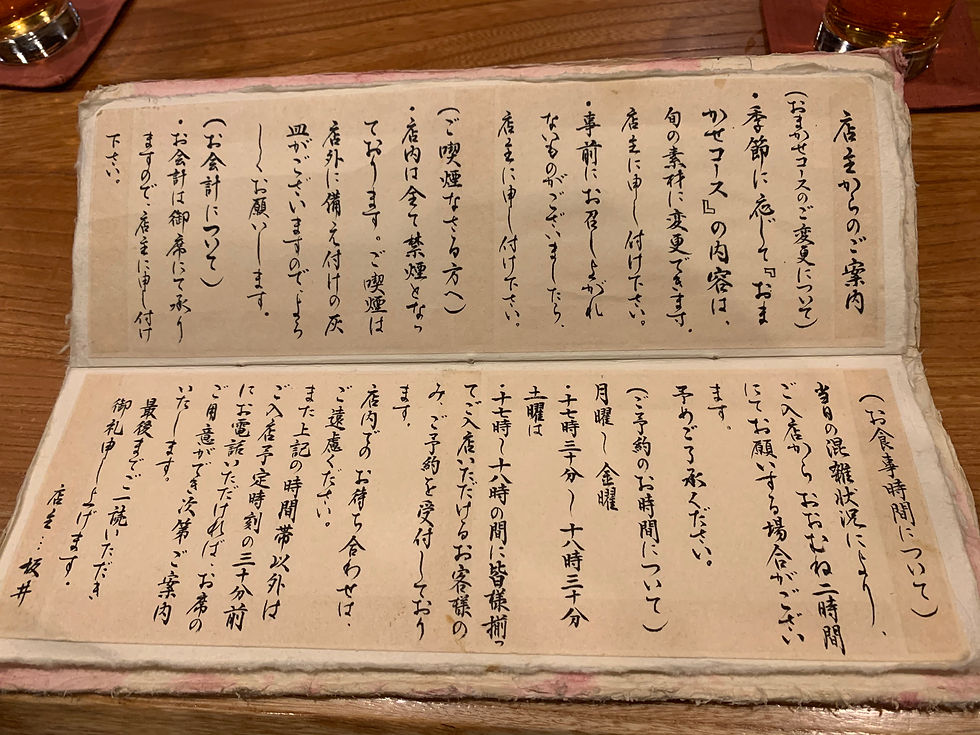 店主からのご案内
(おまかせコースのご変更について)
・季節に応じて『おま
かせコース』の内容は、
旬の素材に変更できます。
店主に申し付け下さい。
・事前にお召し上がれ
ないものがございましたら、
店主に申し付け下さい。
(ご喫煙なさる方へ)
・店内は全て禁煙となっ
ております。ご喫煙は
店外に備え付けの灰
皿がございますので、よろ
しくお願いします。
(お会計について)
・お会計は御席にて承り
ますので、店主に申し付け
下さい。
(お食事時間について)
当日の混雑状況により、
ご入店から おおむね二時間
にてお願いする場合がござい
ます。
予めご了承ください。
(ご予約のお時間について)
月曜〜金曜
・十七時三十分〜十八時三十分
土曜は
・十七時〜十八時の間に皆様揃っ
てご入店いただけるお客様の
み、ご予約を受付しており
ます。
店内でのお待ち合わせは、
ご遠慮ください。
また上記の時間帯以外は
ご入店予定時刻の三十分前
にお電話いただければ、お席の
ご用意ができ次第ご案内
いたします。
最後までご一読いただき
御礼申し上げます。
店主…坂井